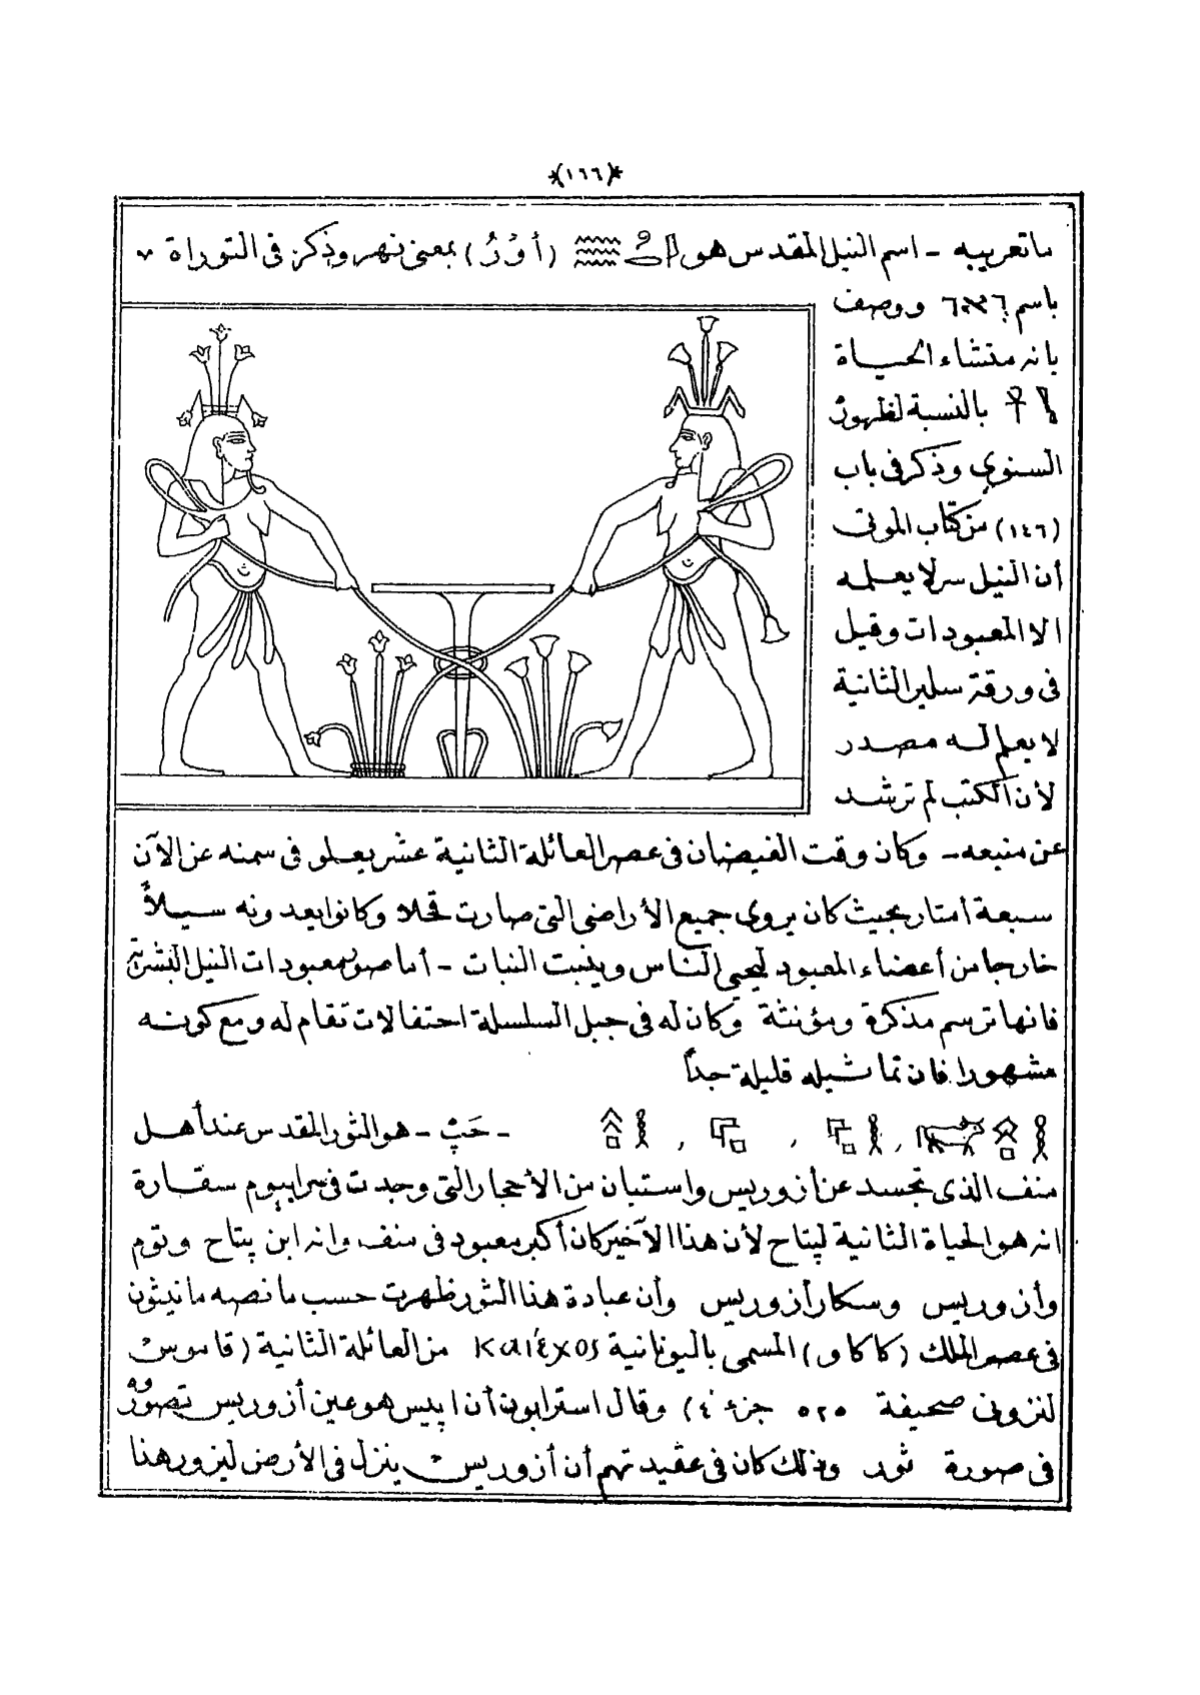 *(١٦٦)*
ماتعريبه - اسم النيل المقدس هو (أوْرُ) بمعنى نهر وذكر في التوراة
باسم ووصف
بانه منشاء الحياة
بالنسبة لظهوره
السنوي وذكر فى باب
(١٤٦) من كتاب الموتى
أن النيل سر لا يعلمه
الا المعبودات وقيل
فى ورقة سلير الثانية
لا يعلم له مصدر
لأن الكتب لم ترشد
عن منبعه - وكان وقت الفيضان فى عصر العائلة الثانية عشر يعلو فى سمنه عن الآن
سبعة أمتار بحيث كان يروى جميع الأراضى التى صارت قحلا وكانوا يعدونه سيلاً
خارجا من أعضاء المعبود ليحيى الناس وينبت النبات - أما صور معبودات النيل البشرية
فانها ترسم مذكرة ومؤنثة وكان له فى جبل السلسلة احتفالات تقام له ومع كونه
مشهورا فان تماثيله قليلة جداً
، ، ، - حَپْ - هو الثور المقدس عند أهل
منف الذى تجسد عن أزوريس واستبان من الأحجار التى وجدت فى سرابيوم سقارة
انه هو الحياة الثانية لپتاح لأن هذا الآخير كان أكبر معبود فى منف وانه ابن پتاح وتوم
وأزوريس وسكار أزوريس وأن عبادة هذا الثور ظهرت حسب ما نصه مانيثون
فى عصر الملك (كاكاو) المسمى باليونانية من العائلة الثانية (قاموس
لنزونى صحيفة ٥٢٥ جزء ٤) وقال استرابون أن اپيس هو عين أزوريس تصوره
فى صورة ثور وذلك كان فى عقيدتهم أن أزوريس ينزل فى الأرض ليزور هنا